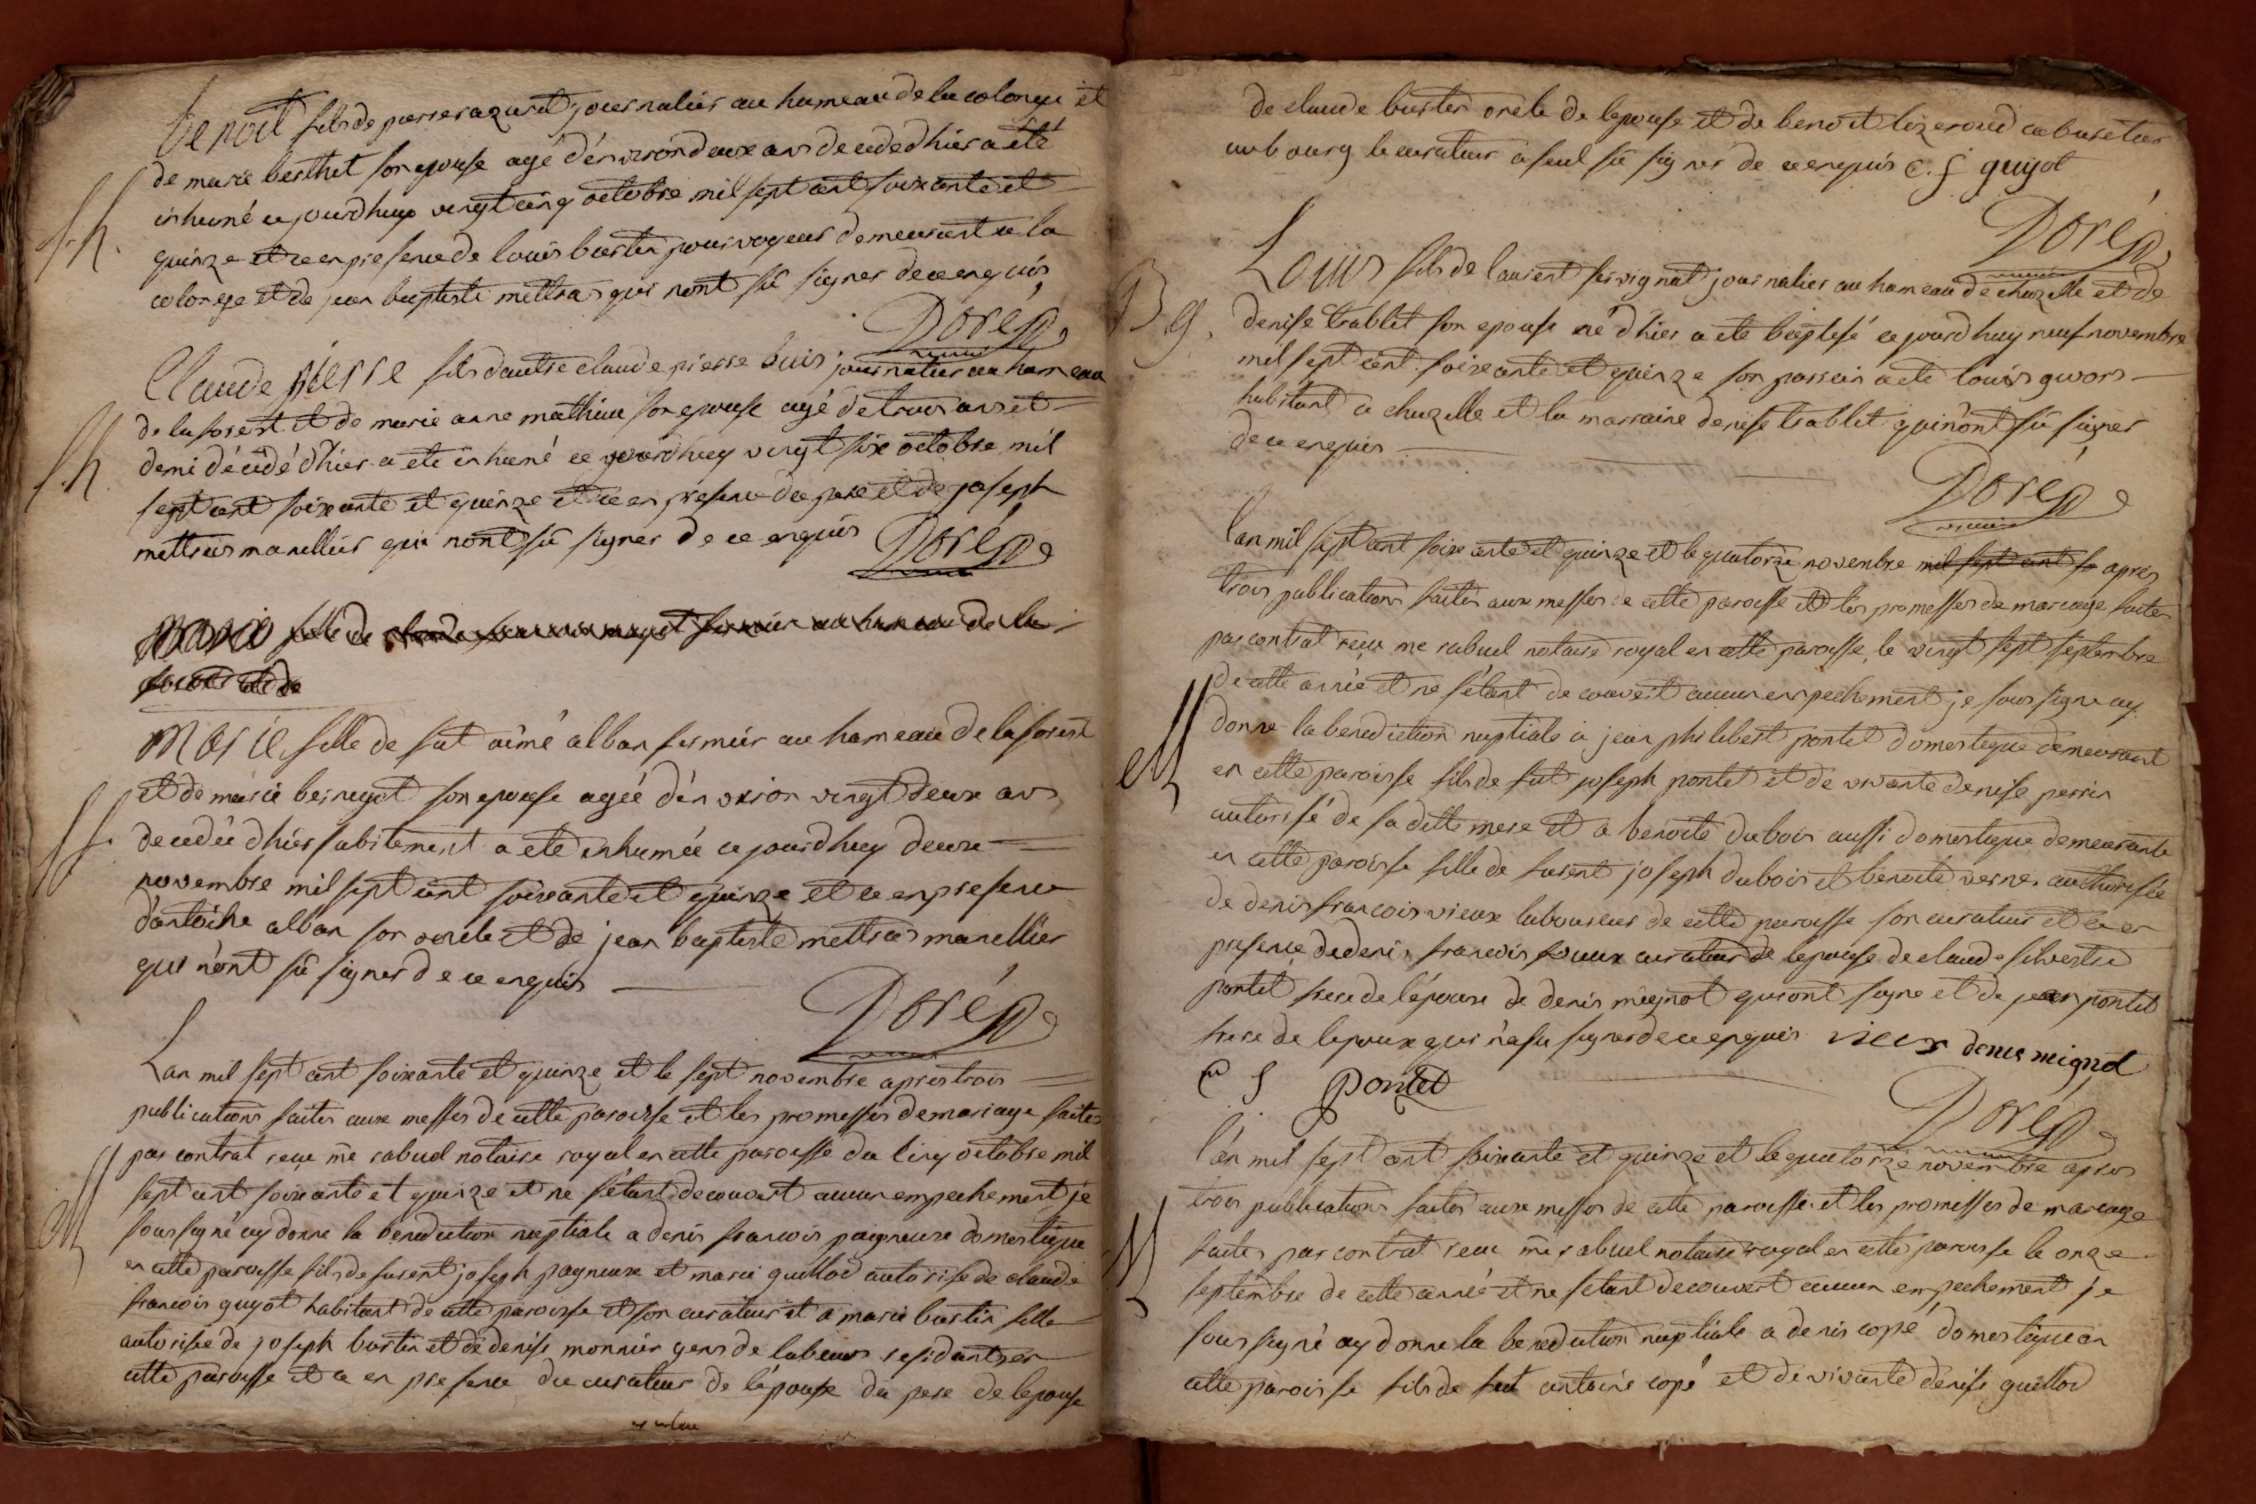 benoit fils de pierre razuret journalier au hameau de la colonge et
de marie berthet son epouse agé d'environ deux ans decedé d'hier a été
inhumé ce jourdhuy vingt cinq octobre mil sept cent soixante et
quinze et ce en presence de louis burtin pourvoyeur demeurant a la
colonge et de jean baptiste mettras qui n'ont sû signer de ce enquis
Doré
f.h.
Claude pierre fils d'autre claude pierre buis journalier au hameau
de la forest et de marie anne mathieu son epouse agé de trois ans et
demi décédé d'hier a eté inhumé ce jourdhuy vingt six octobre mil
sept cent soixante et quinze et ce en presence du pere et de joseph
mettras marellier qui n'ont sû signer de ce enquis Doré
f.h.
marie fille de
forest et de
Marie fille de fut aimé alban fermier au hameau de la forest
et de marie bernegot son epouse agée d'environ vingt deux ans
decedée d'hier subitement a eté inhumée ce jourdhuy deux
novembre mil sept cent soixante et quinze et ce en presence
d'antoine alban son oncle et de jean baptiste mettras marellier
qui n'ont sû signer de ce enquis
Doré
f f.
Lan mil sept cent soixante et quinze et le sept novembre apres trois
publications faites aux messes de cette paroisse et les promesses de mariage faites
par contrat reçu me rabuel notaire royal en cette paroisse du cinq octobre mil
sept cent soixante et quinze et ne s'étant decouvert aucun empechement je
soussigné ay donné la benediction nuptiale a denis francois pagneux domestique
en cette paroisse fils de furent joseph pagneux et marie guillod autorisé de claude
francois guyot habitant de cette paroisse et son curateur et a marie burtin fille
autorisée de joseph burtin et de denise monnier gens de labeur residants en
cette paroisse et ce en presence du curateur de l'époux du pere de lepouse
M
de claude burtin oncle de lepouse et de benoit lizeroud cabaretier
au bourg le curateur a seul sû signer de ce enquis c. f guyot
Doré
Louis fils de laurent servignat journalier au hameau de chazelle et de
denise trablet son epouse né d'hier a eté baptisé ce jourdhuy neuf novembre
mil sept cent soixante et quinze son parrain a eté louis guvors
habitant a chazelle et la marraine denise trablet qui n'ont sû signer
de ce enquis
Doré
B g.
lan mil sept cent soixante et quinze et le quatorze novembre mil sept cent so apres
trois publications faites aux messes de cette paroisse et les promesses de mariage faites
par contrat reçu me rabuel notaire royal en cette paroisse le vingt sept septembre
de cette année et ne s'étant decouvert aucun empechement je soussigné ay
donné la benediction nuptiale a jean philibert pontet domestique demeurant
en cette paroisse fils de fut joseph pontet et de vivante denise perrin
autorisé de sa dette mere et a benoite dubois aussi domestique demeurante
en cette paroisse fille de furent joseph dubois et benoite verne authorisée
de denis francois vieux laboureur de cette paroisse son curateur et ce en
presence de denis francois vieux curateur de lepouse de claude silvestre
pontet frere de l'époux de denis mignot qui ont signé et de jean pontet
frere de lepoux qui n'a su signer de ce enquis vieux denis mignol
c s pontet
Doré
M
lan mil sept cent soixante et quinze et le quatorze novembre apres
trois publications faites aux messes de cette paroisse et les promesses de mariage
faites par contrat reçu me rabuel notaire royal en cette paroisse le onze
septembre de cette année et ne s'étant decouvert aucun empechement je
soussigné ay donné la benediction nuptiale a denis copé domestique en
cette paroisse fils de fut antoine copé et de vivante denise guillod
M